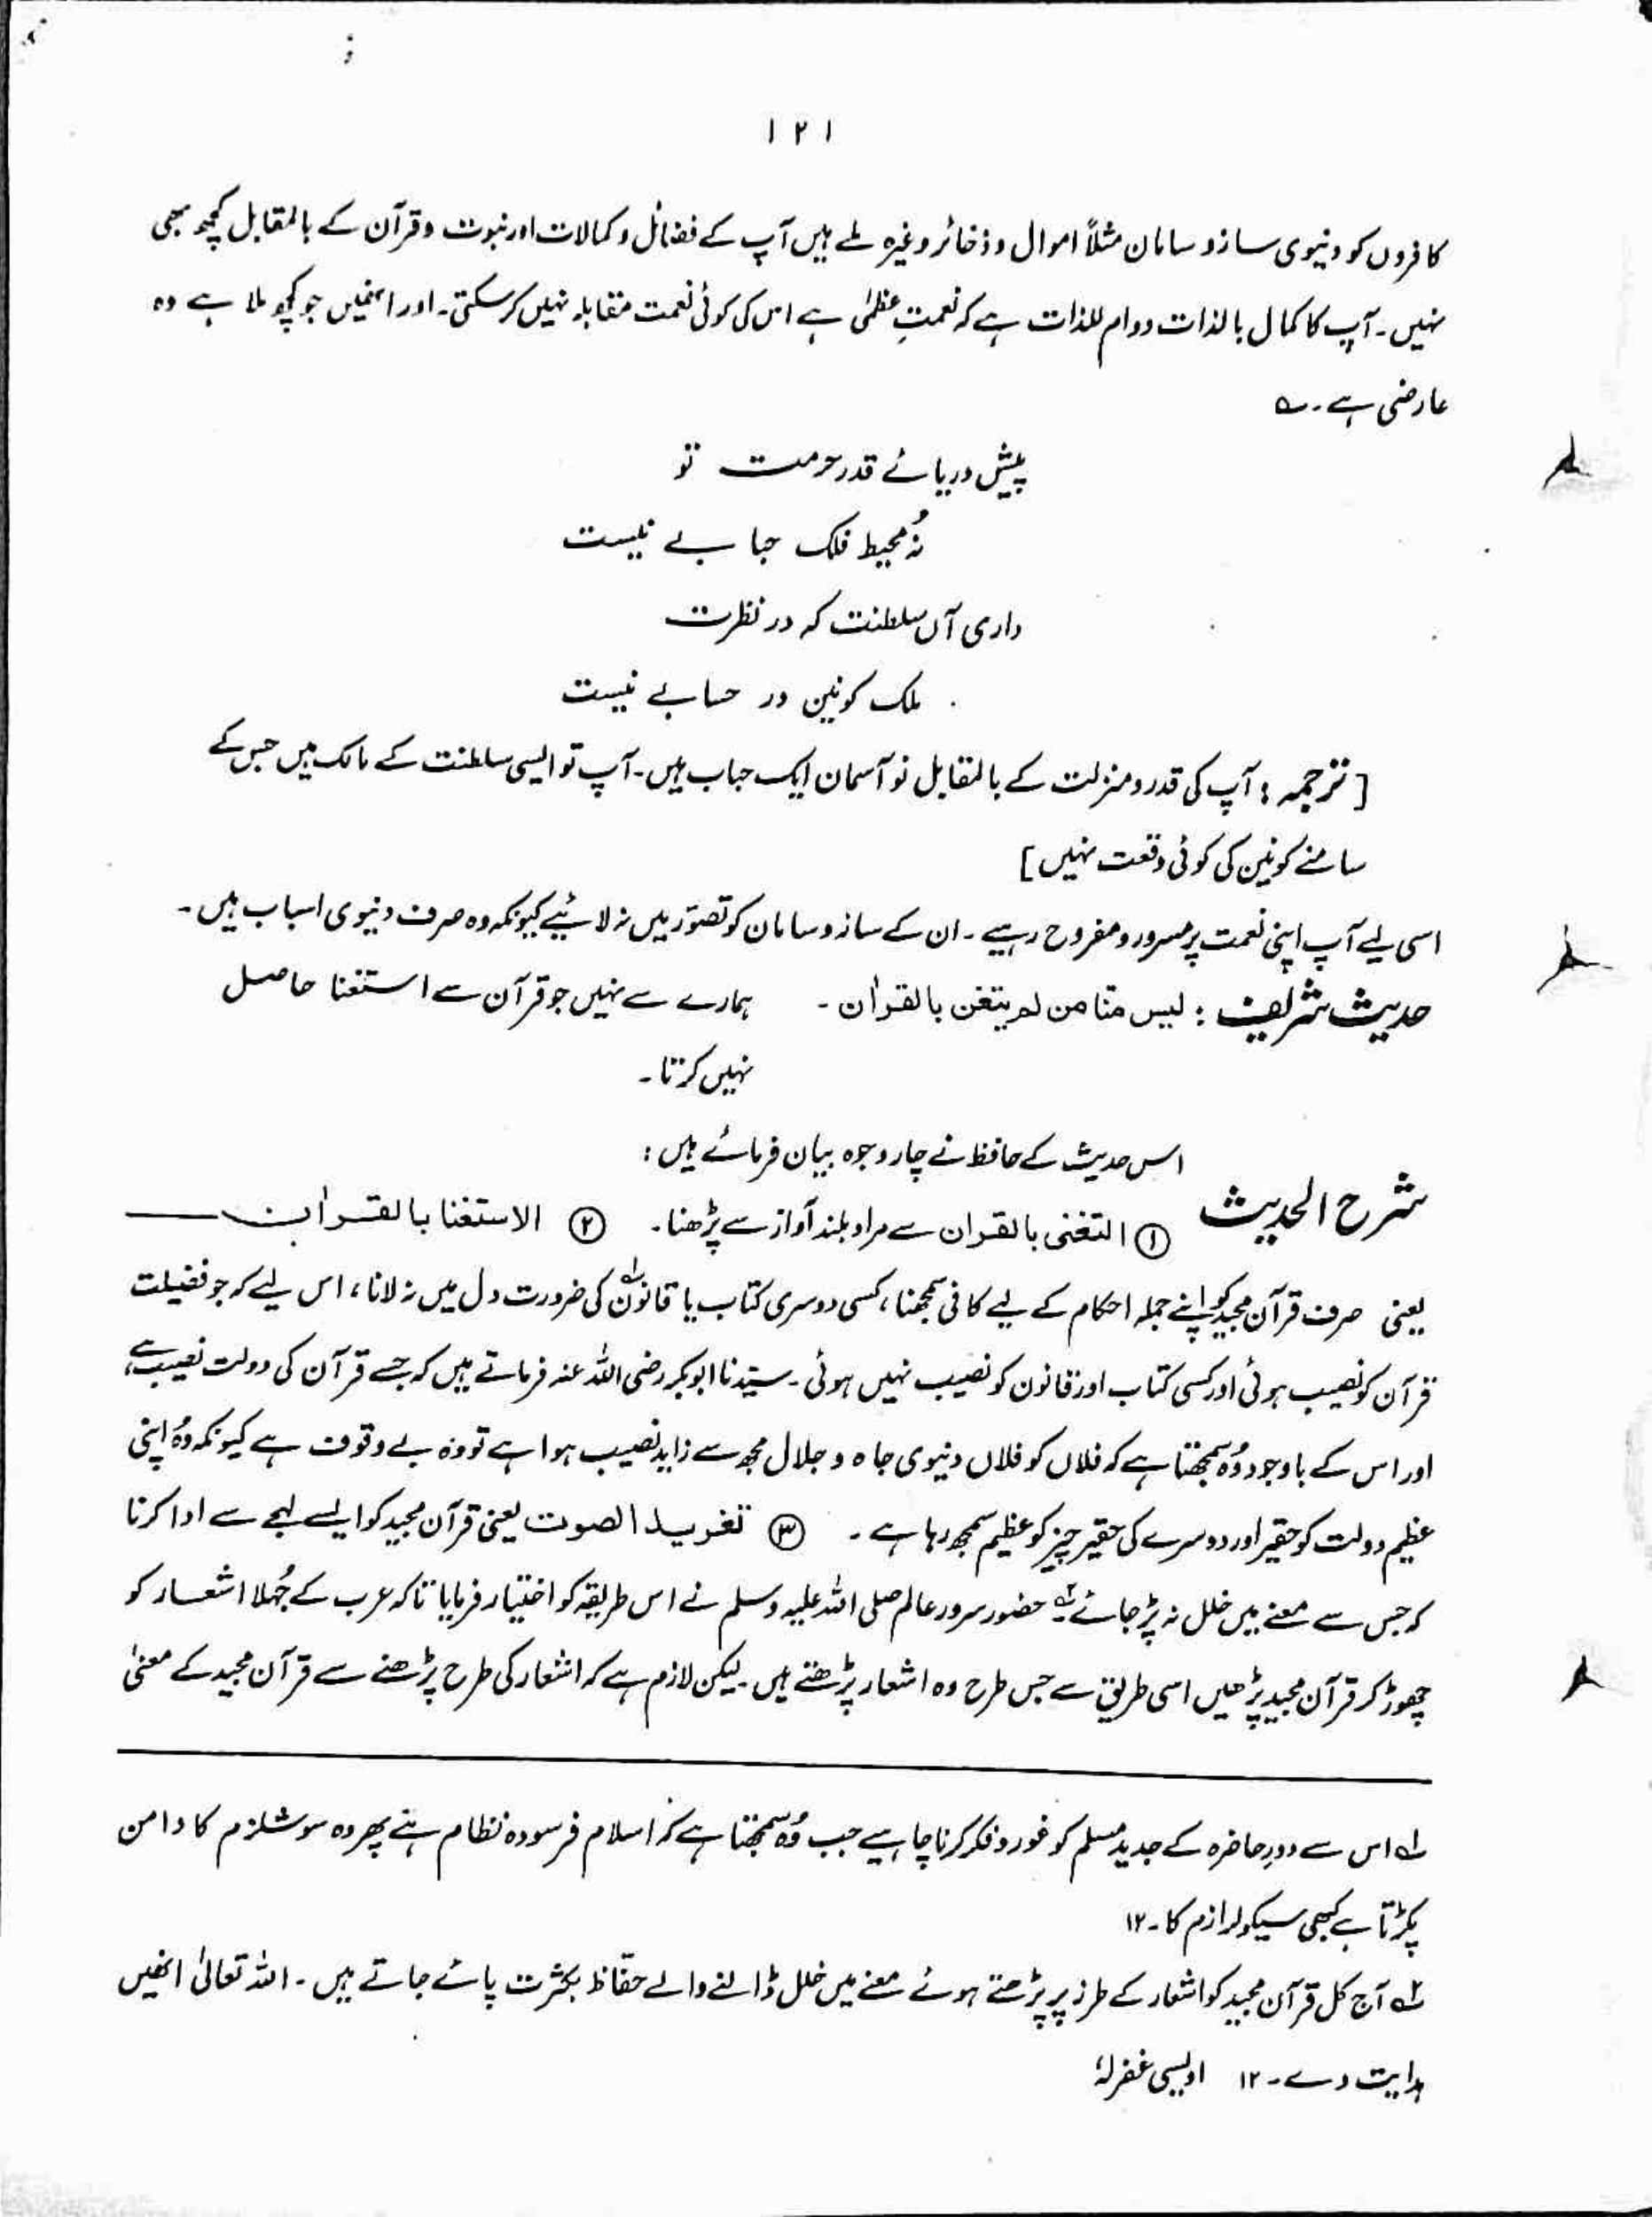 ۱۲۱
کافروں کو دنیوی ساز و سامان مثلاً اموال و ذخائر وغیرہ ملے ہیں آپ کے فضائل و کمالات اور نبوت و قرآن کے بالمقابل کچھ بھی
نہیں۔ آپ کا کمال بالذات دوام للذات ہے کہ نعمتِ عظمٰی ہے اس کی کوئی نعمت مقابلہ نہیں کر سکتی۔ اور انہیں جو کچھ ملا ہے وہ
عارضی ہے۔ ؎
پیش دریائے قدر حرمت تو
نُہ محیط فلک حبابے نیست
داری آں سلطنت کہ در نظرت
ملک کونین در حسابے نیست
[ ترجمہ : آپ کی قدر و منزلت کے بالمقابل نو آسمان ایک حباب ہیں۔ آپ تو ایسی سلطنت کے مالک ہیں جس کے
سامنے کونین کی کوئی وقعت نہیں ]
اسی لیے آپ اپنی نعمت پر مسرور و مفروح رہیے۔ ان کے ساز و سامان کو تصوّر میں نہ لائیے کیونکہ وہ صرف دنیوی اسباب ہیں۔
حدیث شریف : لیس منّا من لم یتغن بالقراٰن۔ ہمارے سے نہیں جو قرآن سے استغنا حاصل
نہیں کرتا۔
اس حدیث کے حافظ نے چار وجوہ بیان فرمائے ہیں :
شرح الحدیث ① التغنی بالقران سے مراد بلند آواز سے پڑھنا۔ ② الاستغنا بالقران
یعنی صرف قرآن مجید کو اپنے جملہ احکام کے لیے کافی سمجھنا، کسی دوسری کتاب یا قانون۱؎ کی ضرورت دل میں نہ لانا، اس لیے کہ جو فضیلت
قرآن کو نصیب ہوئی اور کسی کتاب اور قانون کو نصیب نہیں ہوئی۔ سیّدنا ابوبکر رضی اللہ عنہ فرماتے ہیں کہ جسے قرآن کی دولت نصیب ہے،
اور اس کے باوجود وُہ سمجھتا ہے کہ فلاں کو فلاں دنیوی جاہ و جلال مجھ سے زاید نصیب ہوا ہے تو وہ بے وقوف ہے کیونکہ وُہ اپنی
عظیم دولت کو حقیر اور دوسرے کی حقیر چیز کو عظیم سمجھ رہا ہے۔ ③ تغرید الصوت یعنی قرآن مجید کو ایسے لہجے سے ادا کرنا
کہ جس سے معنے میں خلل نہ پڑ جائے۲؎ حضور سرور عالم صلی اللہ علیہ وسلم نے اس طریقہ کو اختیار فرمایا تاکہ عرب کے جُہلا اشعار کو
چھوڑ کر قرآن مجید پڑھیں اسی طریق سے جس طرح وہ اشعار پڑھتے ہیں۔ لیکن لازم ہے کہ اشعار کی طرح پڑھنے سے قرآن مجید کے معنیٰ
۱؎ اس سے دورِ حاضرہ کے جدید مسلم کو غور و فکر کرنا چاہیے جب وُہ سمجھتا ہے کہ اسلام فرسودہ نظام ہے پھر وہ سوشلزم کا دامن
پکڑتا ہے کبھی سیکولرازم کا۔ ۱۲
۲؎ آج کل قرآن مجید کو اشعار کے طرز پر پڑھتے ہوئے معنے میں خلل ڈالنے والے حفّاظ بکثرت پائے جاتے ہیں۔ اللہ تعالیٰ انھیں
ہدایت دے۔ ۱۲ اویسی غفرلہٗ